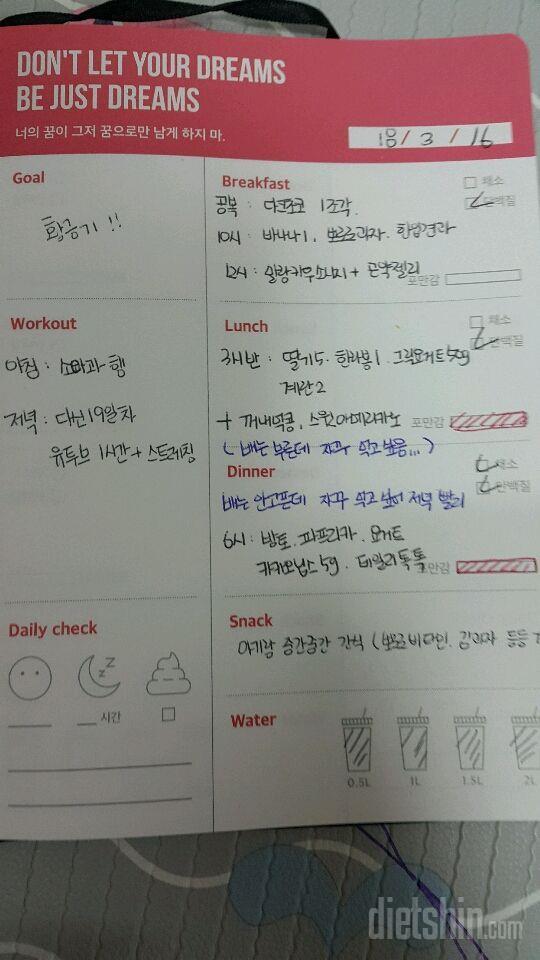 DON'T LET YOUR DREAMS
BE JUST DREAMS
너의 꿈이 그저 꿈으로만 남게 하지 마.
18 / 3 / 16
Goal
황금기 !!
Breakfast
채소
단백질
공복 : 다크초코 1조각.
10시 : 바나나1, 뽀로로과자. 한입견과
12시 : 키우소시지 + 곤약젤리
포만감
Workout
아침 : 행
저녁 : 다신19일차
유투브 1시간 + 스트레칭
Lunch
채소
단백질
3시반 : 딸기5. 한라봉1. 그릭요거트50g
계란2
+ 꺼내먹콩, 아메리카노
포만감
( 배는 부른데 자꾸 먹고싶음... )
Dinner
채소
단백질
배는 안고픈데 자꾸 먹고싶어 저녁 빨리
6시 : 방토. 파프리카. 요거트
카카오닙스 5g. 데일리톡톡
포만감
Daily check
시간
Snack
아기랑 중간중간 간식 ( 뽀로로비타민. 김과자 등등
Water
0.5L
1L
1.5L
2L
dietshin.com